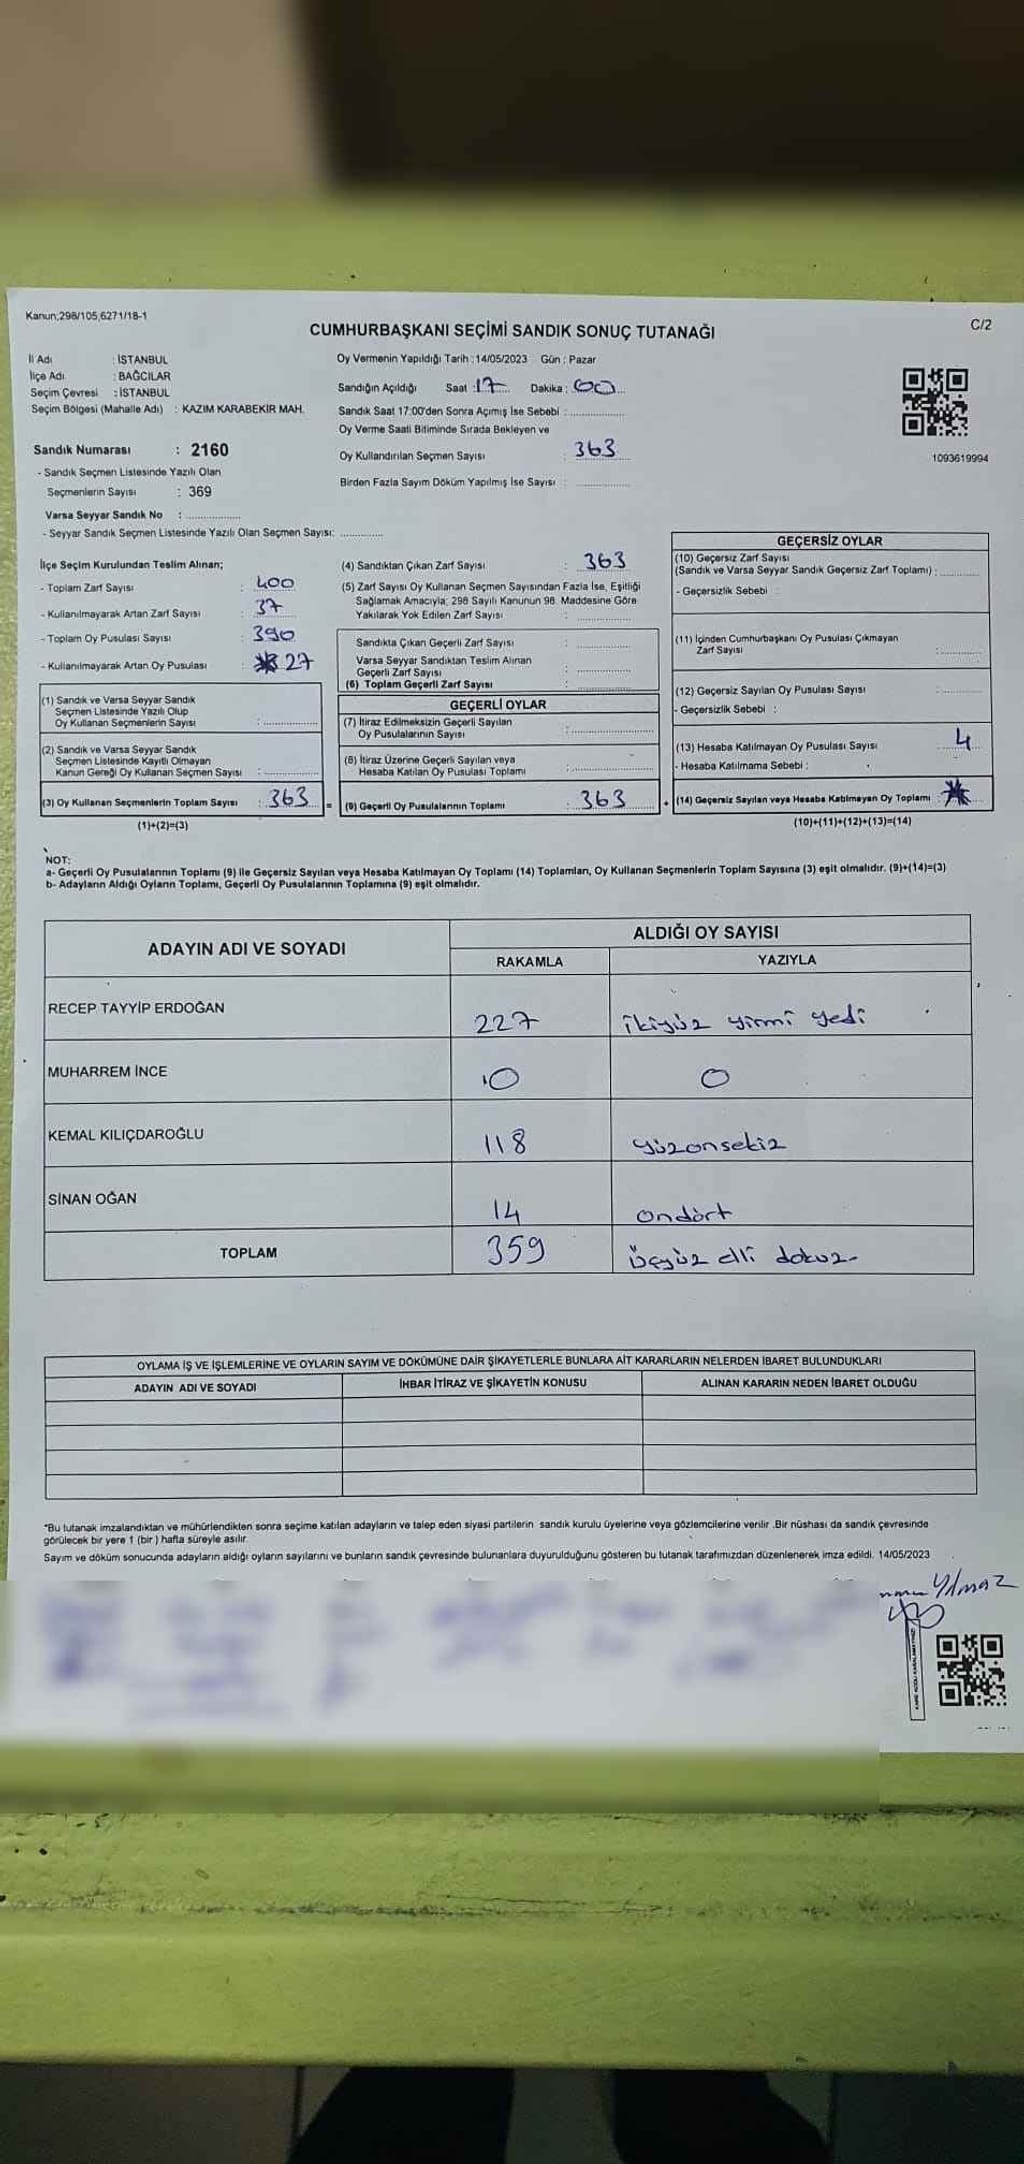 Kanun;298/105,6271/18-1
C/2
CUMHURBAŞKANI SEÇİMİ SANDIK SONUÇ TUTANAĞI
İl Adı : İSTANBUL
İlçe Adı : BAĞCILAR
Seçim Çevresi : İSTANBUL
Seçim Bölgesi (Mahalle Adı) : KAZIM KARABEKİR MAH.
Sandık Numarası : 2160
- Sandık Seçmen Listesinde Yazılı Olan
Seçmenlerin Sayısı : 369
Varsa Seyyar Sandık No : ..................
- Seyyar Sandık Seçmen Listesinde Yazılı Olan Seçmen Sayısı: ..............
Oy Vermenin Yapıldığı Tarih : 14/05/2023 Gün : Pazar
Sandığın Açıldığı Saat : 17 Dakika : 00
Sandık Saat 17:00'den Sonra Açımış İse Sebebi : ..................
Oy Verme Saati Bitiminde Sırada Bekleyen ve
Oy Kullandırılan Seçmen Sayısı : 363
Birden Fazla Sayım Döküm Yapılmış İse Sayısı : ..................
1093619994
İlçe Seçim Kurulundan Teslim Alınan;
- Toplam Zarf Sayısı : 400
- Kullanılmayarak Artan Zarf Sayısı : 37
- Toplam Oy Pusulası Sayısı : 390
- Kullanılmayarak Artan Oy Pusulası : 27
(1) Sandık ve Varsa Seyyar Sandık
Seçmen Listesinde Yazılı Olup
Oy Kullanan Seçmenlerin Sayısı : ..................
(2) Sandık ve Varsa Seyyar Sandık
Seçmen Listesinde Kayıtlı Olmayan
Kanun Gereği Oy Kullanan Seçmen Sayısı : ..................
(3) Oy Kullanan Seçmenlerin Toplam Sayısı : 363 =
(1)+(2)=(3)
(4) Sandıktan Çıkan Zarf Sayısı : 363
(5) Zarf Sayısı Oy Kullanan Seçmen Sayısından Fazla İse, Eşitliği
Sağlamak Amacıyla; 298 Sayılı Kanunun 98. Maddesine Göre
Yakılarak Yok Edilen Zarf Sayısı : ..................
Sandıkta Çıkan Geçerli Zarf Sayısı : ..................
Varsa Seyyar Sandıktan Teslim Alınan
Geçerli Zarf Sayısı : ..................
(6) Toplam Geçerli Zarf Sayısı : ..................
GEÇERLİ OYLAR
(7) İtiraz Edilmeksizin Geçerli Sayılan
Oy Pusulalarının Sayısı : ..................
(8) İtiraz Üzerine Geçerli Sayılan veya
Hesaba Katılan Oy Pusulası Toplamı : ..................
(9) Geçerli Oy Pusulalarının Toplamı : 363 +
GEÇERSİZ OYLAR
(10) Geçersiz Zarf Sayısı
(Sandık ve Varsa Seyyar Sandık Geçersiz Zarf Toplamı) : ............
- Geçersizlik Sebebi :
(11) İçinden Cumhurbaşkanı Oy Pusulası Çıkmayan
Zarf Sayısı : ............
(12) Geçersiz Sayılan Oy Pusulası Sayısı : ............
- Geçersizlik Sebebi :
(13) Hesaba Katılmayan Oy Pusulası Sayısı : 4
- Hesaba Katılmama Sebebi :
(14) Geçersiz Sayılan veya Hesaba Katılmayan Oy Toplamı :
(10)+(11)+(12)+(13)=(14)
NOT:
a- Geçerli Oy Pusulalarının Toplamı (9) ile Geçersiz Sayılan veya Hesaba Katılmayan Oy Toplamı (14) Toplamları, Oy Kullanan Seçmenlerin Toplam Sayısına (3) eşit olmalıdır. (9)+(14)=(3)
b- Adayların Aldığı Oyların Toplamı, Geçerli Oy Pusulalarının Toplamına (9) eşit olmalıdır.
ADAYIN ADI VE SOYADI
ALDIĞI OY SAYISI
RAKAMLA YAZIYLA
RECEP TAYYİP ERDOĞAN 227 ikiyüz yirmi yedi
MUHARREM İNCE 0 0
KEMAL KILIÇDAROĞLU 118 yüzonsekiz
SİNAN OĞAN 14 ondört
TOPLAM 359 üçyüz elli dokuz
OYLAMA İŞ VE İŞLEMLERİNE VE OYLARIN SAYIM VE DÖKÜMÜNE DAİR ŞİKAYETLERLE BUNLARA AİT KARARLARIN NELERDEN İBARET BULUNDUKLARI
ADAYIN ADI VE SOYADI İHBAR İTİRAZ VE ŞİKAYETİN KONUSU ALINAN KARARIN NEDEN İBARET OLDUĞU
*Bu tutanak imzalandıktan ve mühürlendikten sonra seçime katılan adayların ve talep eden siyasi partilerin sandık kurulu üyelerine veya gözlemcilerine verilir .Bir nüshası da sandık çevresinde
görülecek bir yere 1 (bir ) hafta süreyle asılır.
Sayım ve döküm sonucunda adayların aldığı oyların sayılarını ve bunların sandık çevresinde bulunanlara duyurulduğunu gösteren bu tutanak tarafımızdan düzenlenerek imza edildi. 14/05/2023
Yılmaz